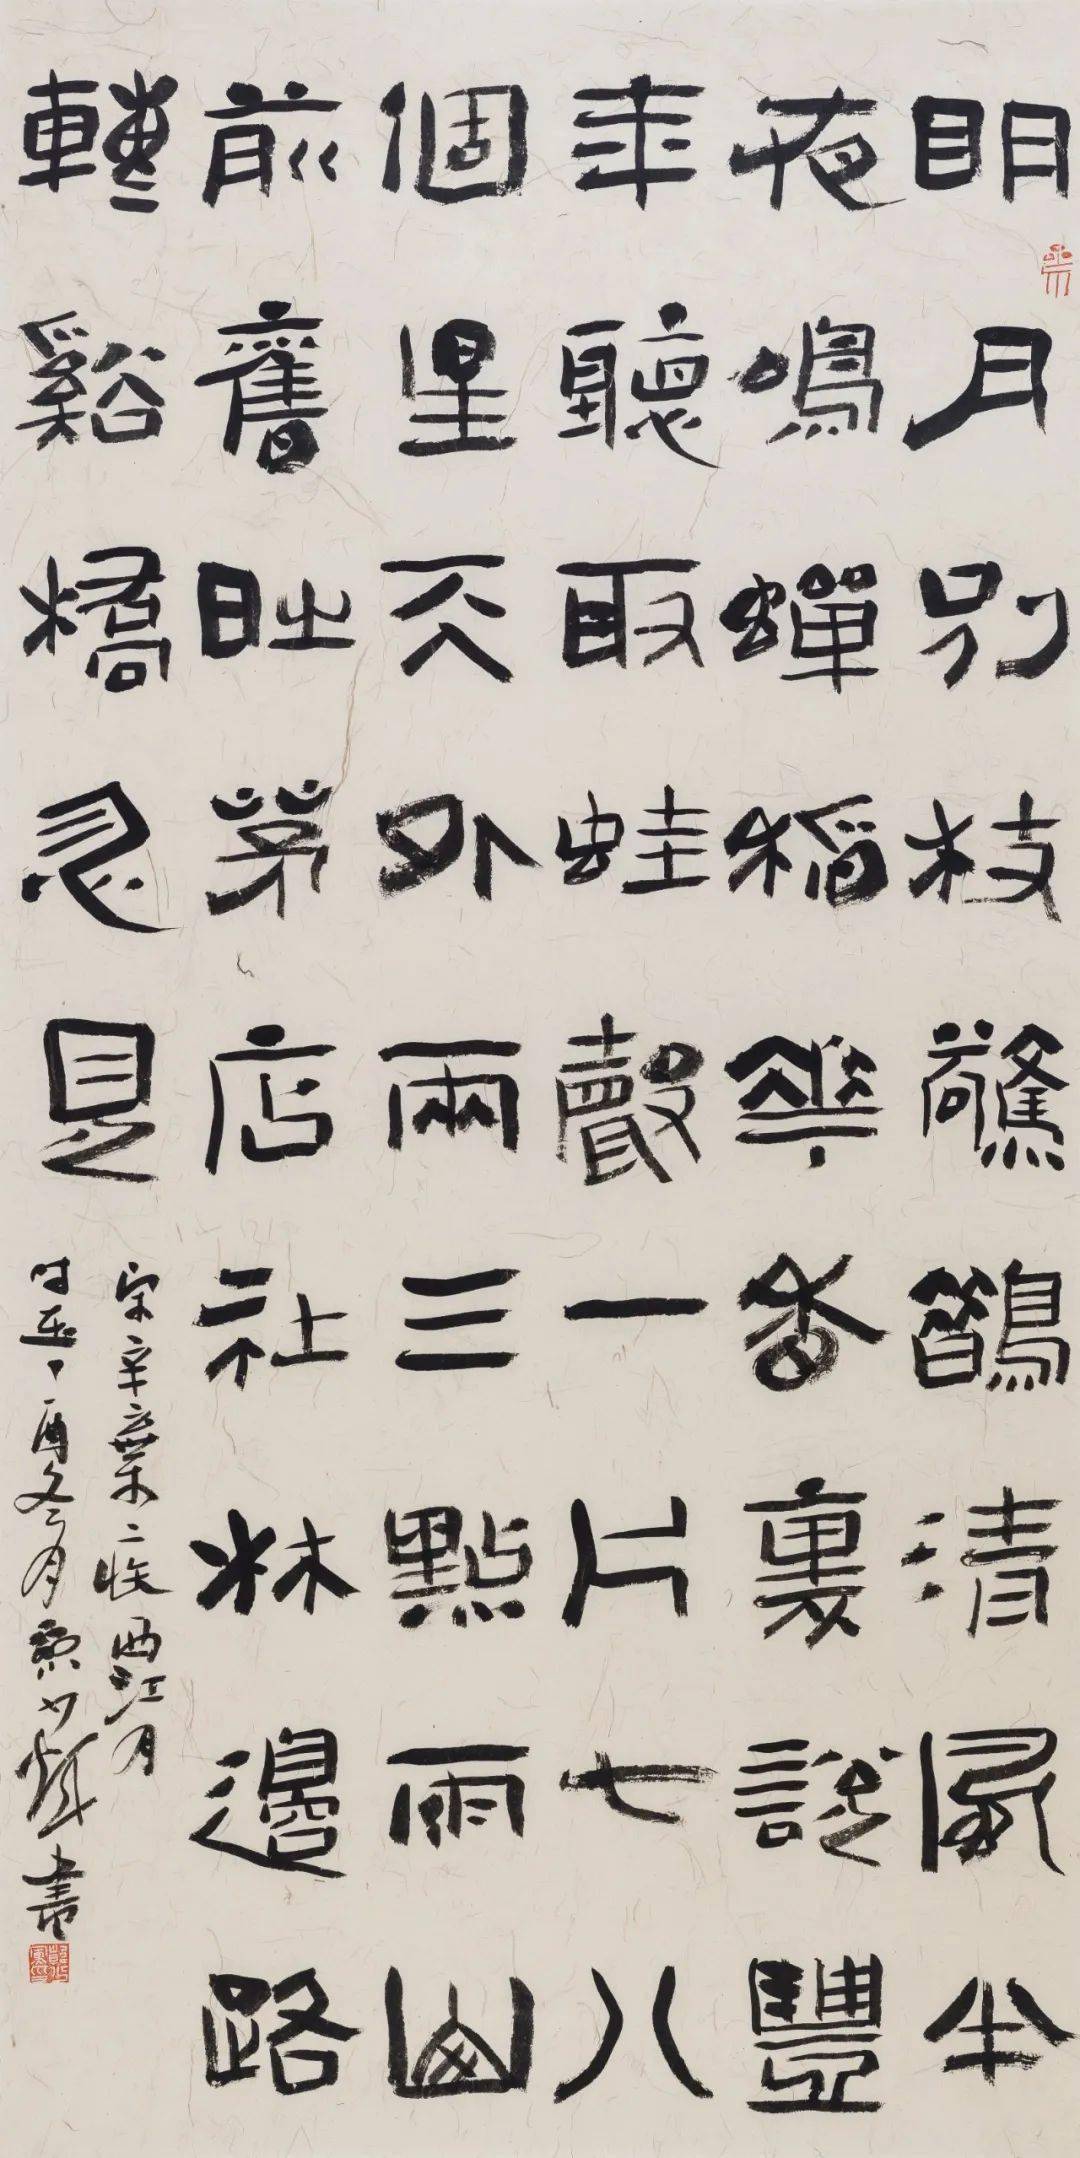 眀月別枝驚鵲清風半
夜鳴蟬稻華香裏說豐
年聽取蛙聲一片七八
個星天外兩三點雨山
前舊時茅店社林邊路
轉谿橋忽見
宋辛棄疾西江月
时在丁酉冬月書